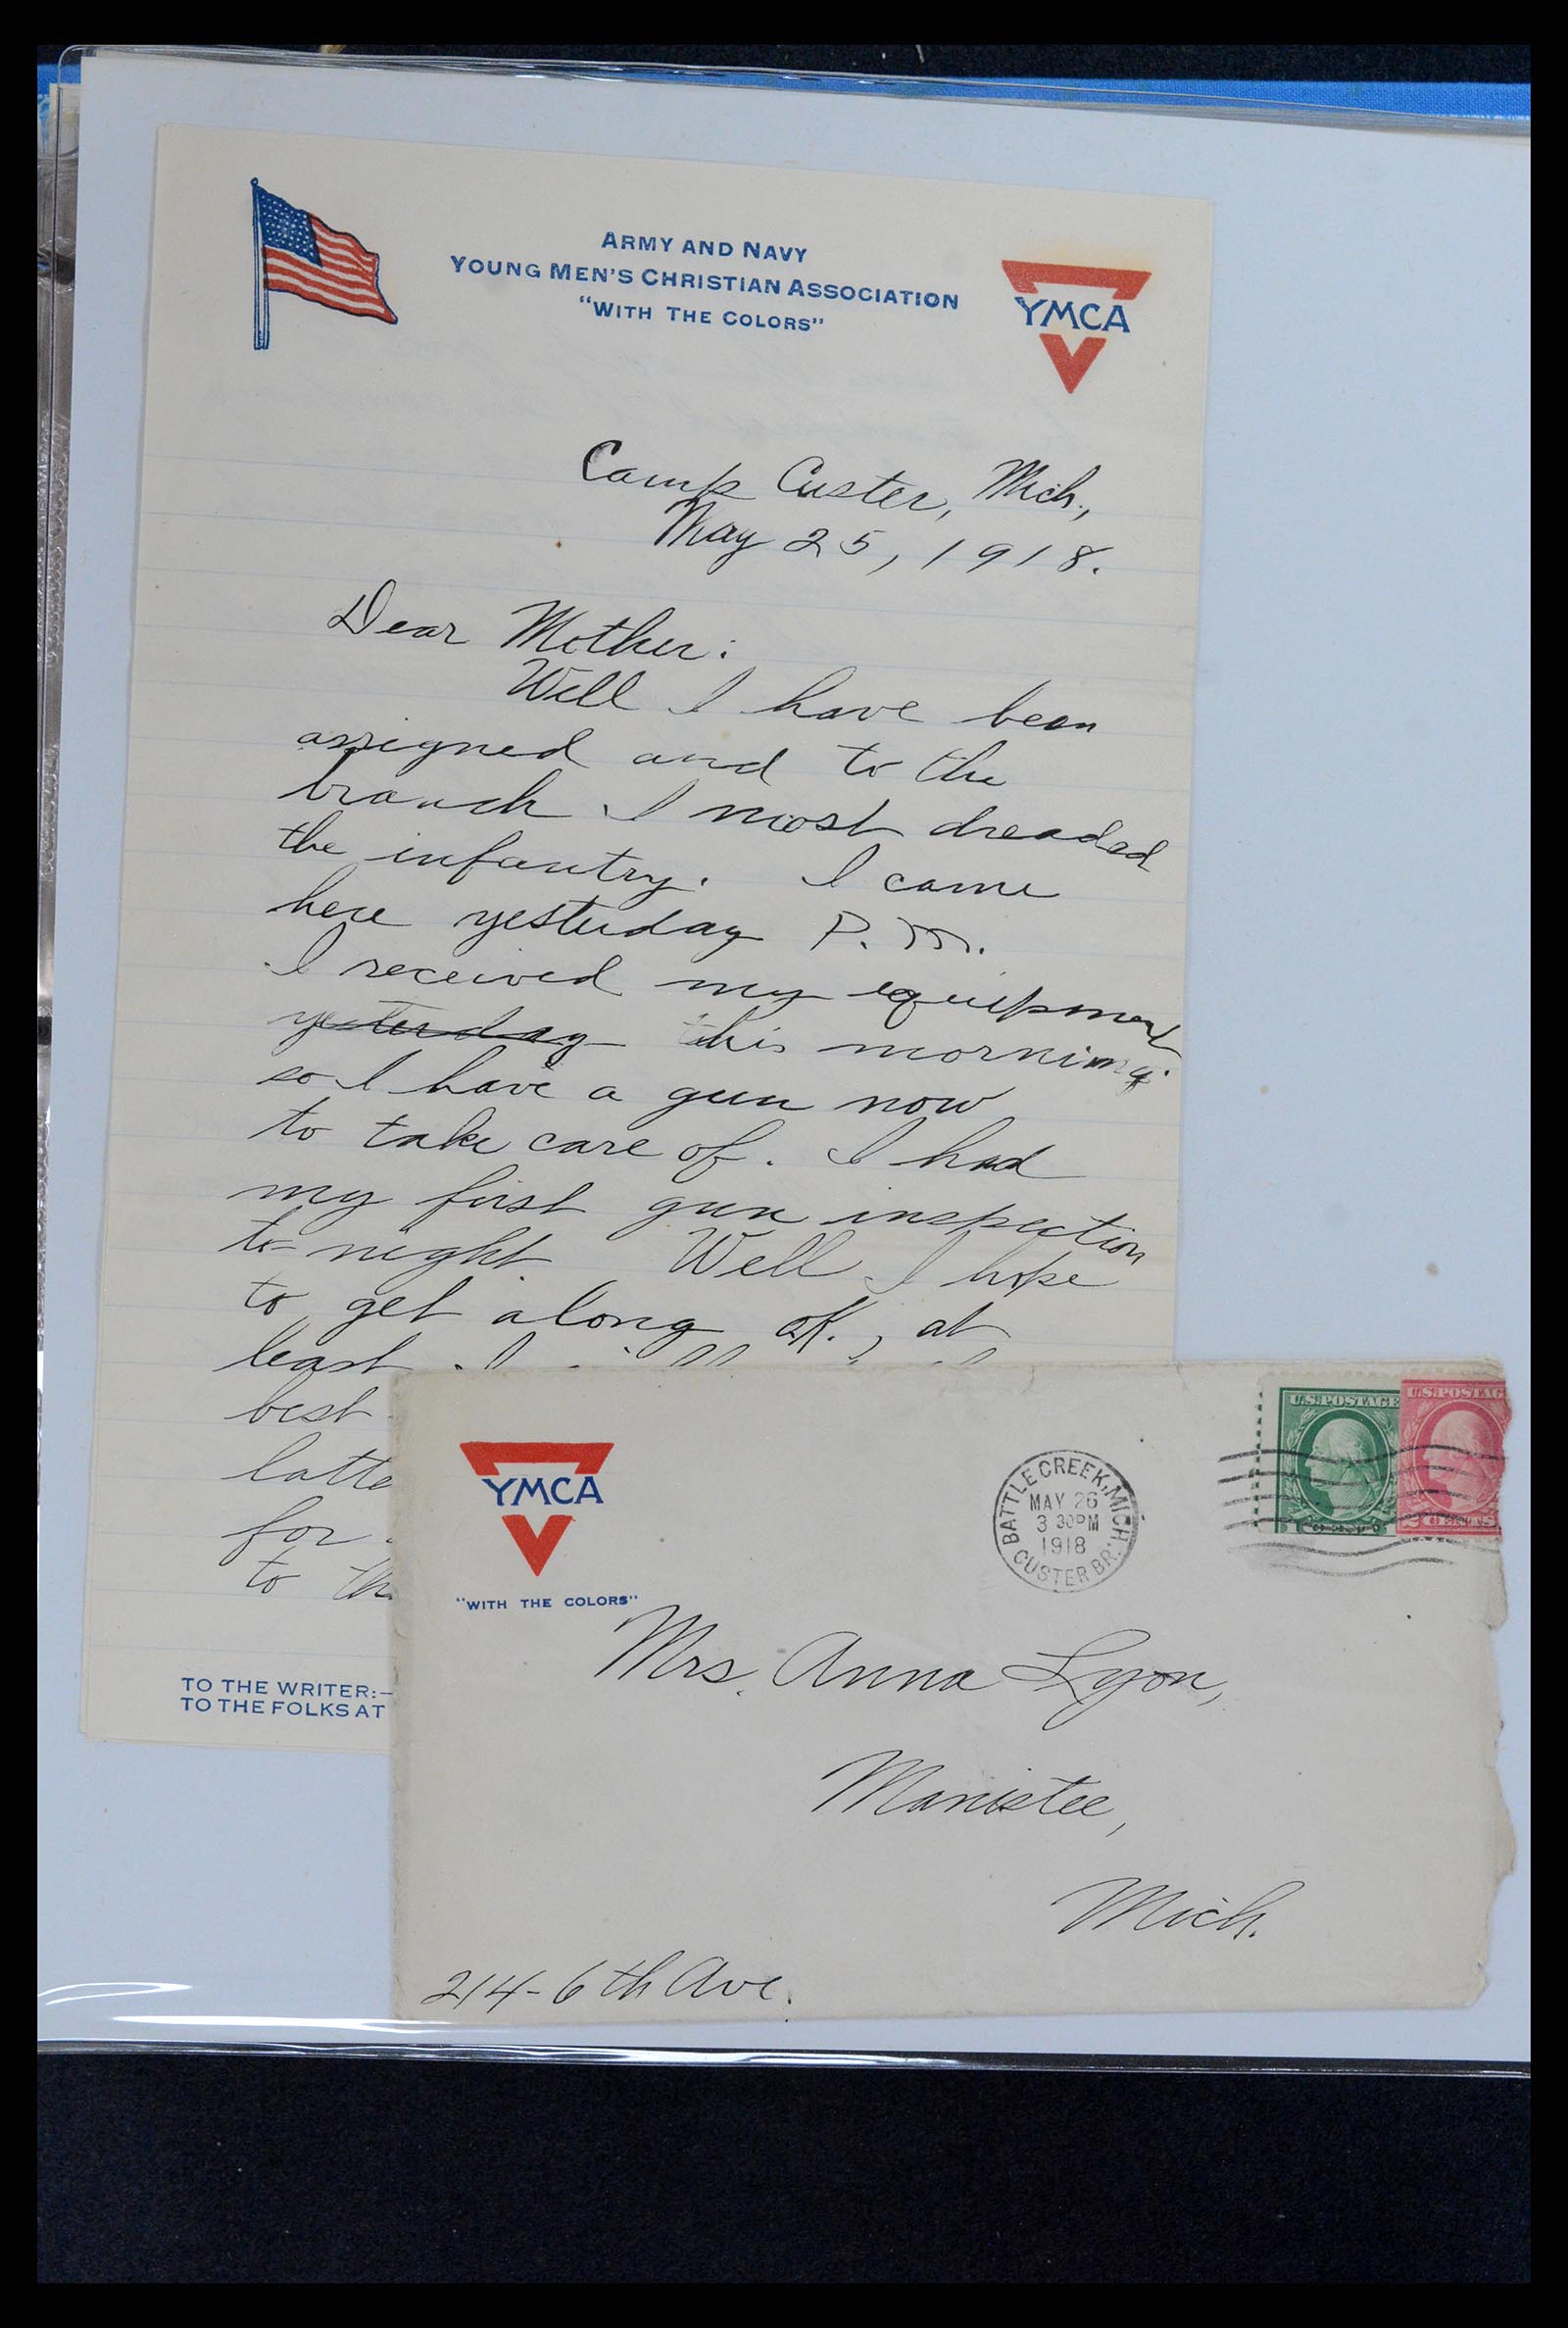 ARMY AND NAVY
YOUNG MEN'S CHRISTIAN ASSOCIATION
"WITH THE COLORS"
YMCA
Camp Custer, Mich.,
May 25, 1918.
Dear Mother:
Well I have been
assigned and to the
branch I most dreaded
the infantry. I came
here yesterday P.M.
I received my equipment
yesterday this morning.
so I have a gun now
to take care of. I had
my first gun inspection
to-night. Well I hope
to get along oK., at
least I
best
latte
for
to th
TO THE WRITER:—
TO THE FOLKS AT
YMCA
"WITH THE COLORS"
BATTLE CREEK, MICH.
MAY 26
3 30PM
1918
CUSTER BR.
U.S. POSTAGE
U.S. POSTAG
2 CENTS
Mrs. Anna Lyon,
Manistee,
Mich.
214-6th Ave.